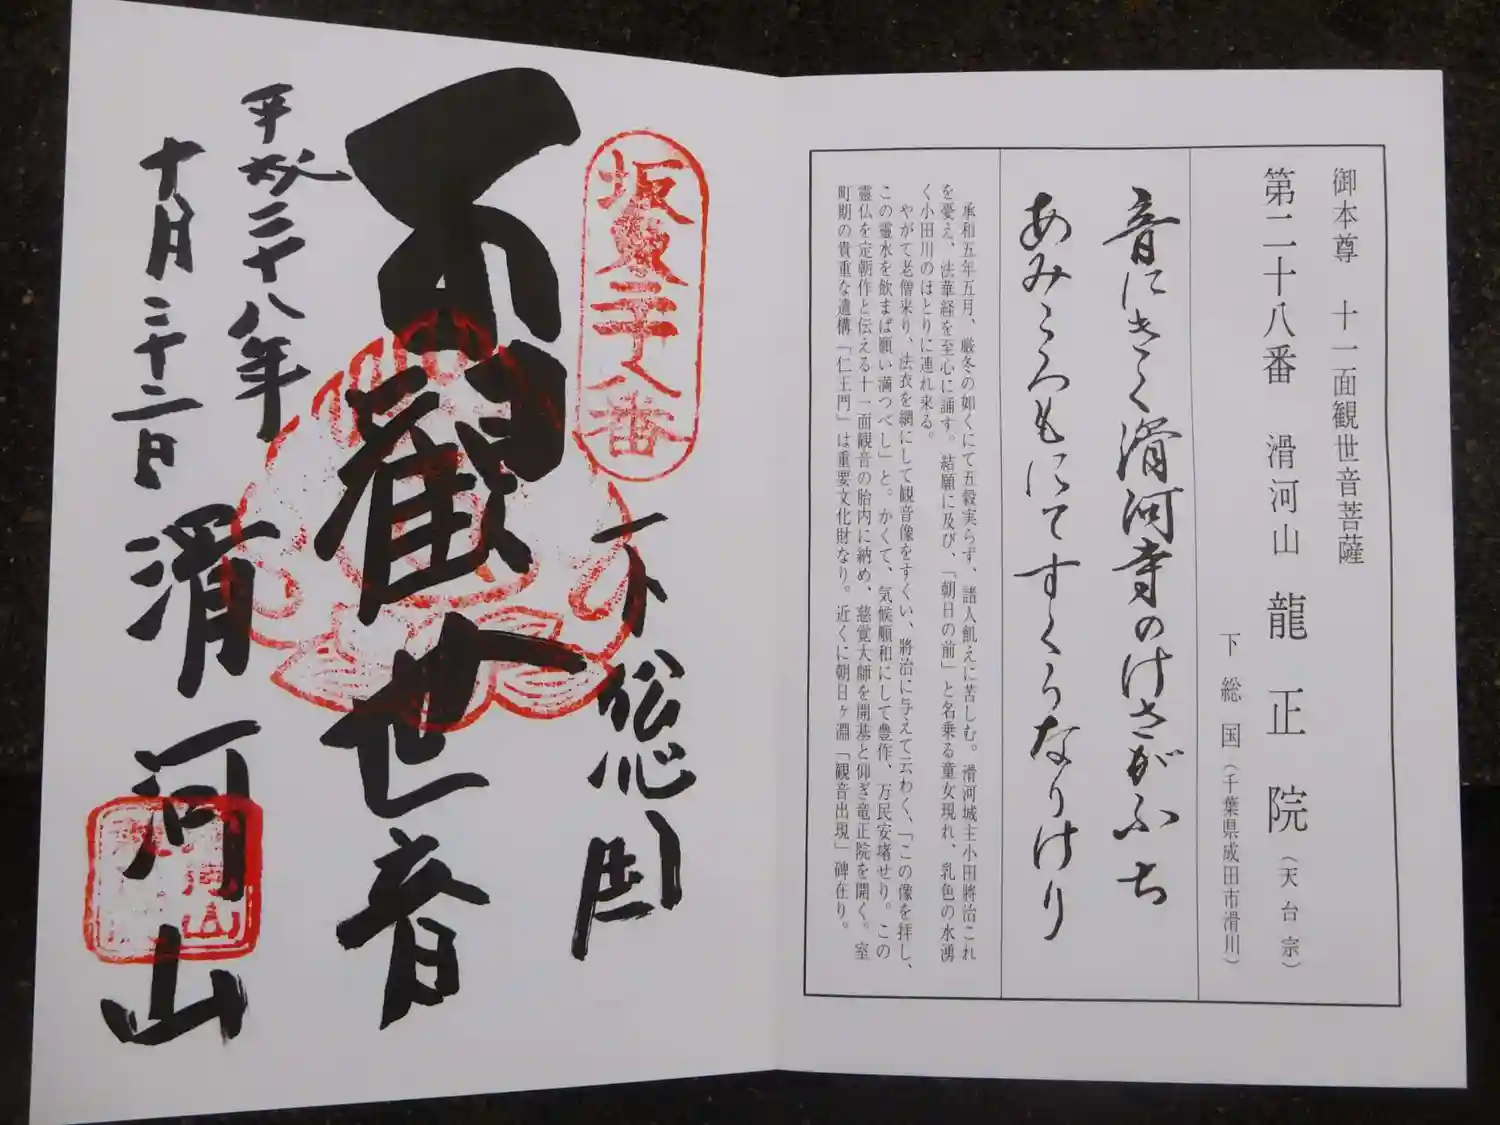 御本尊 十一面観世音菩薩
第二十八番 滑河山 龍正院（天台宗）
下総国（千葉県成田市滑川）
音にきく滑河寺のけさがふち
あみころもにてすくうなりけり
承和五年五月、厳冬の如くにて五穀実らず、諸人飢えに苦しむ。滑河城主小田將治これ
を憂え、法華経を至心に誦す。結願に及び、「朝日の前」と名乗る童女現れ、乳色の水湧
く小田川のほとりに連れ来る。
やがて老僧来り、法衣を網にして観音像をすくい、將治に与えて云わく、「この像を拝し、
この霊水を飲まば願い満つべし」と。かくて、気候順和にして豊作、万民安堵せり。この
霊仏を定朝作と伝える十一面観音の胎内に納め、慈覚大師を開基と仰ぎ竜正院を開く。室
町期の貴重な遺構「仁王門」は重要文化財なり。近くに朝日ヶ淵「観音出現」碑在り。
坂東二十八番
下総国
観世音
平成二十八年
十月二十二日
滑河山